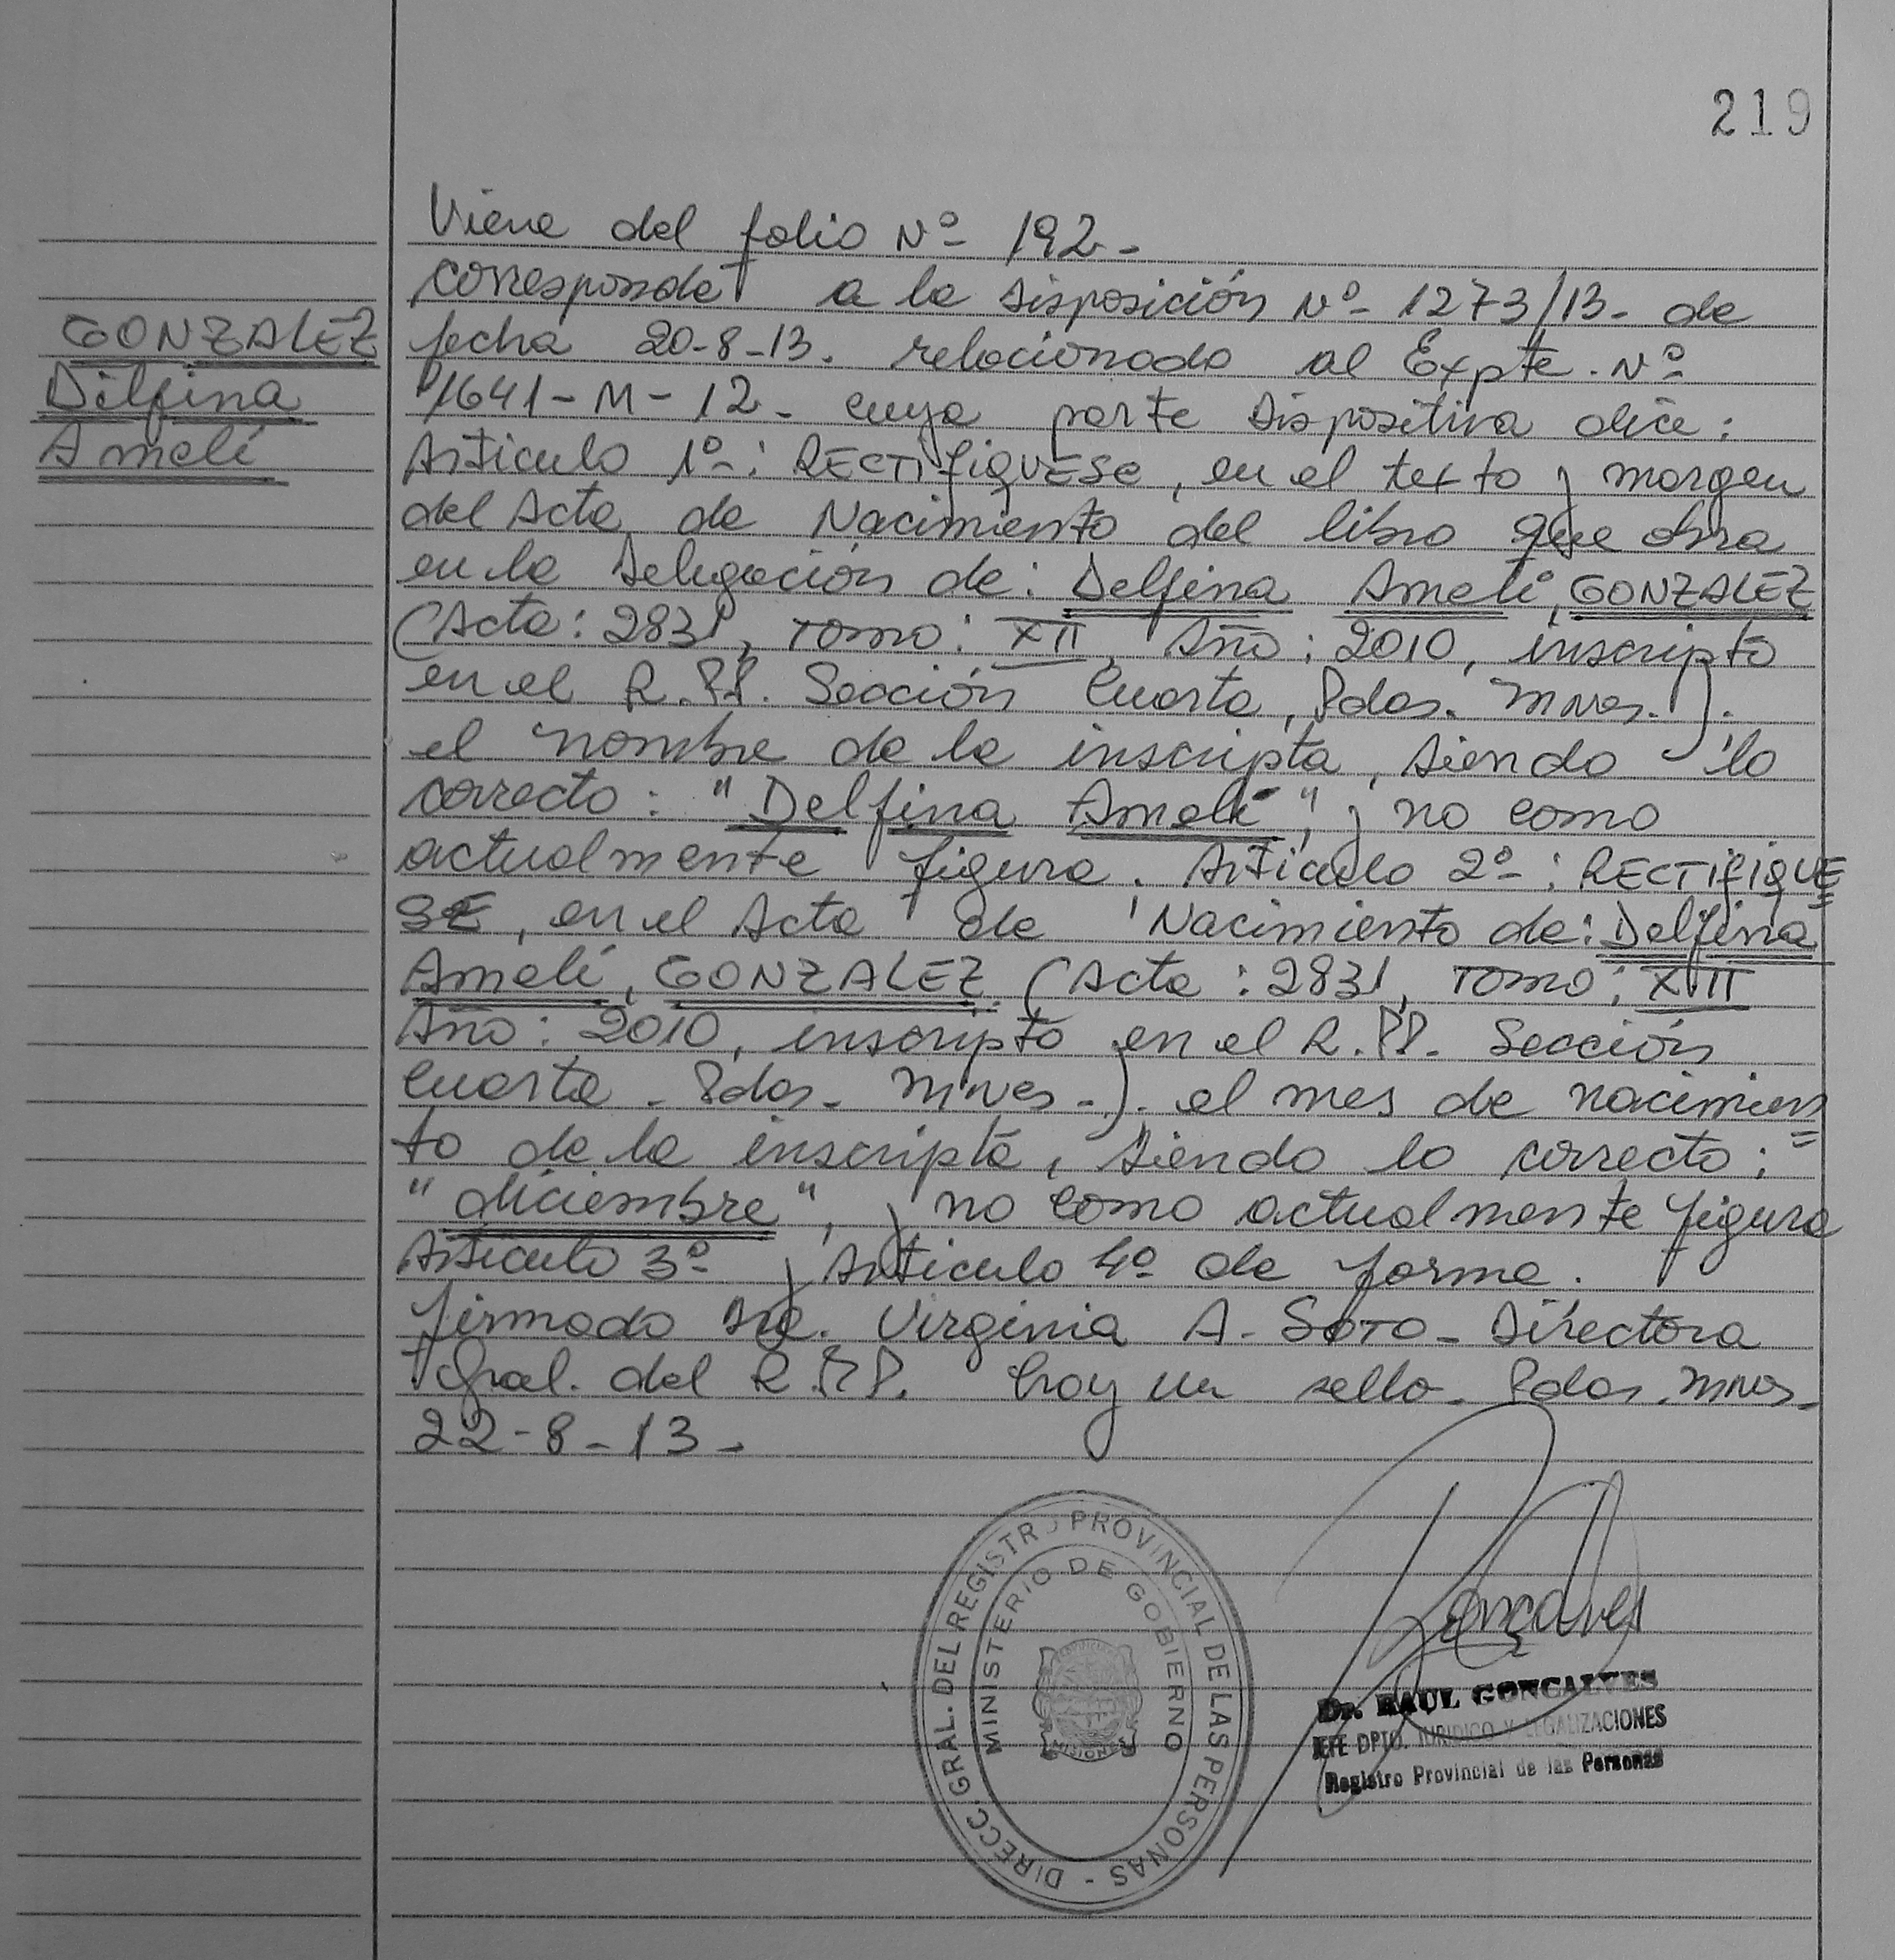 219
Viene del folio Nº 192-
corresponde a la Disposición Nº 1273/13- de
GONZALEZ
fecha 20-8-13. relacionado al Expte. Nº
Delfina
1641-M-12- cuya parte Dispositiva dice:
Amelí
Articulo 1º: RECTIFIQUESE, en el texto y margen
del Acta de Nacimiento del libro que obra
en la Delegación de: Delfina Amelí, GONZALEZ
(Acta: 2831, Tomo: XII, Año: 2010, inscripto
en el R.PP. Sección Cuarta, Pdas. Mnes.).
el nombre de la inscripta, siendo lo
correcto: "Delfina Amelí", y no como
actualmente figura. Articulo 2º: RECTIFIQUE
SE, en el Acta de Nacimiento de: Delfina
Amelí, GONZALEZ. (Acta: 2831, Tomo: XII
Año: 2010, inscripto en el R.PP. Sección
Cuarta - Pdas- Mnes-). el mes de nacimien
to de la inscripta, siendo lo correcto:
"diciembre", y no como actualmente figura
Articulo 3º y Articulo 4º de forma.
firmado Dra. Virginia A. SOTO - Directora
Gral. del R.PP. hay un sello- Pdas. Mnes.
22-8-13-
DIRECC. GRAL. DEL REGISTRO PROVINCIAL DE LAS PERSONAS -
MINISTERIO DE GOBIERNO
MISIONES
Gonçalves
Dr. RAUL GONCALVES
JEFE DPTO. JURIDICO Y LEGALIZACIONES
Registro Provincial de las Personas